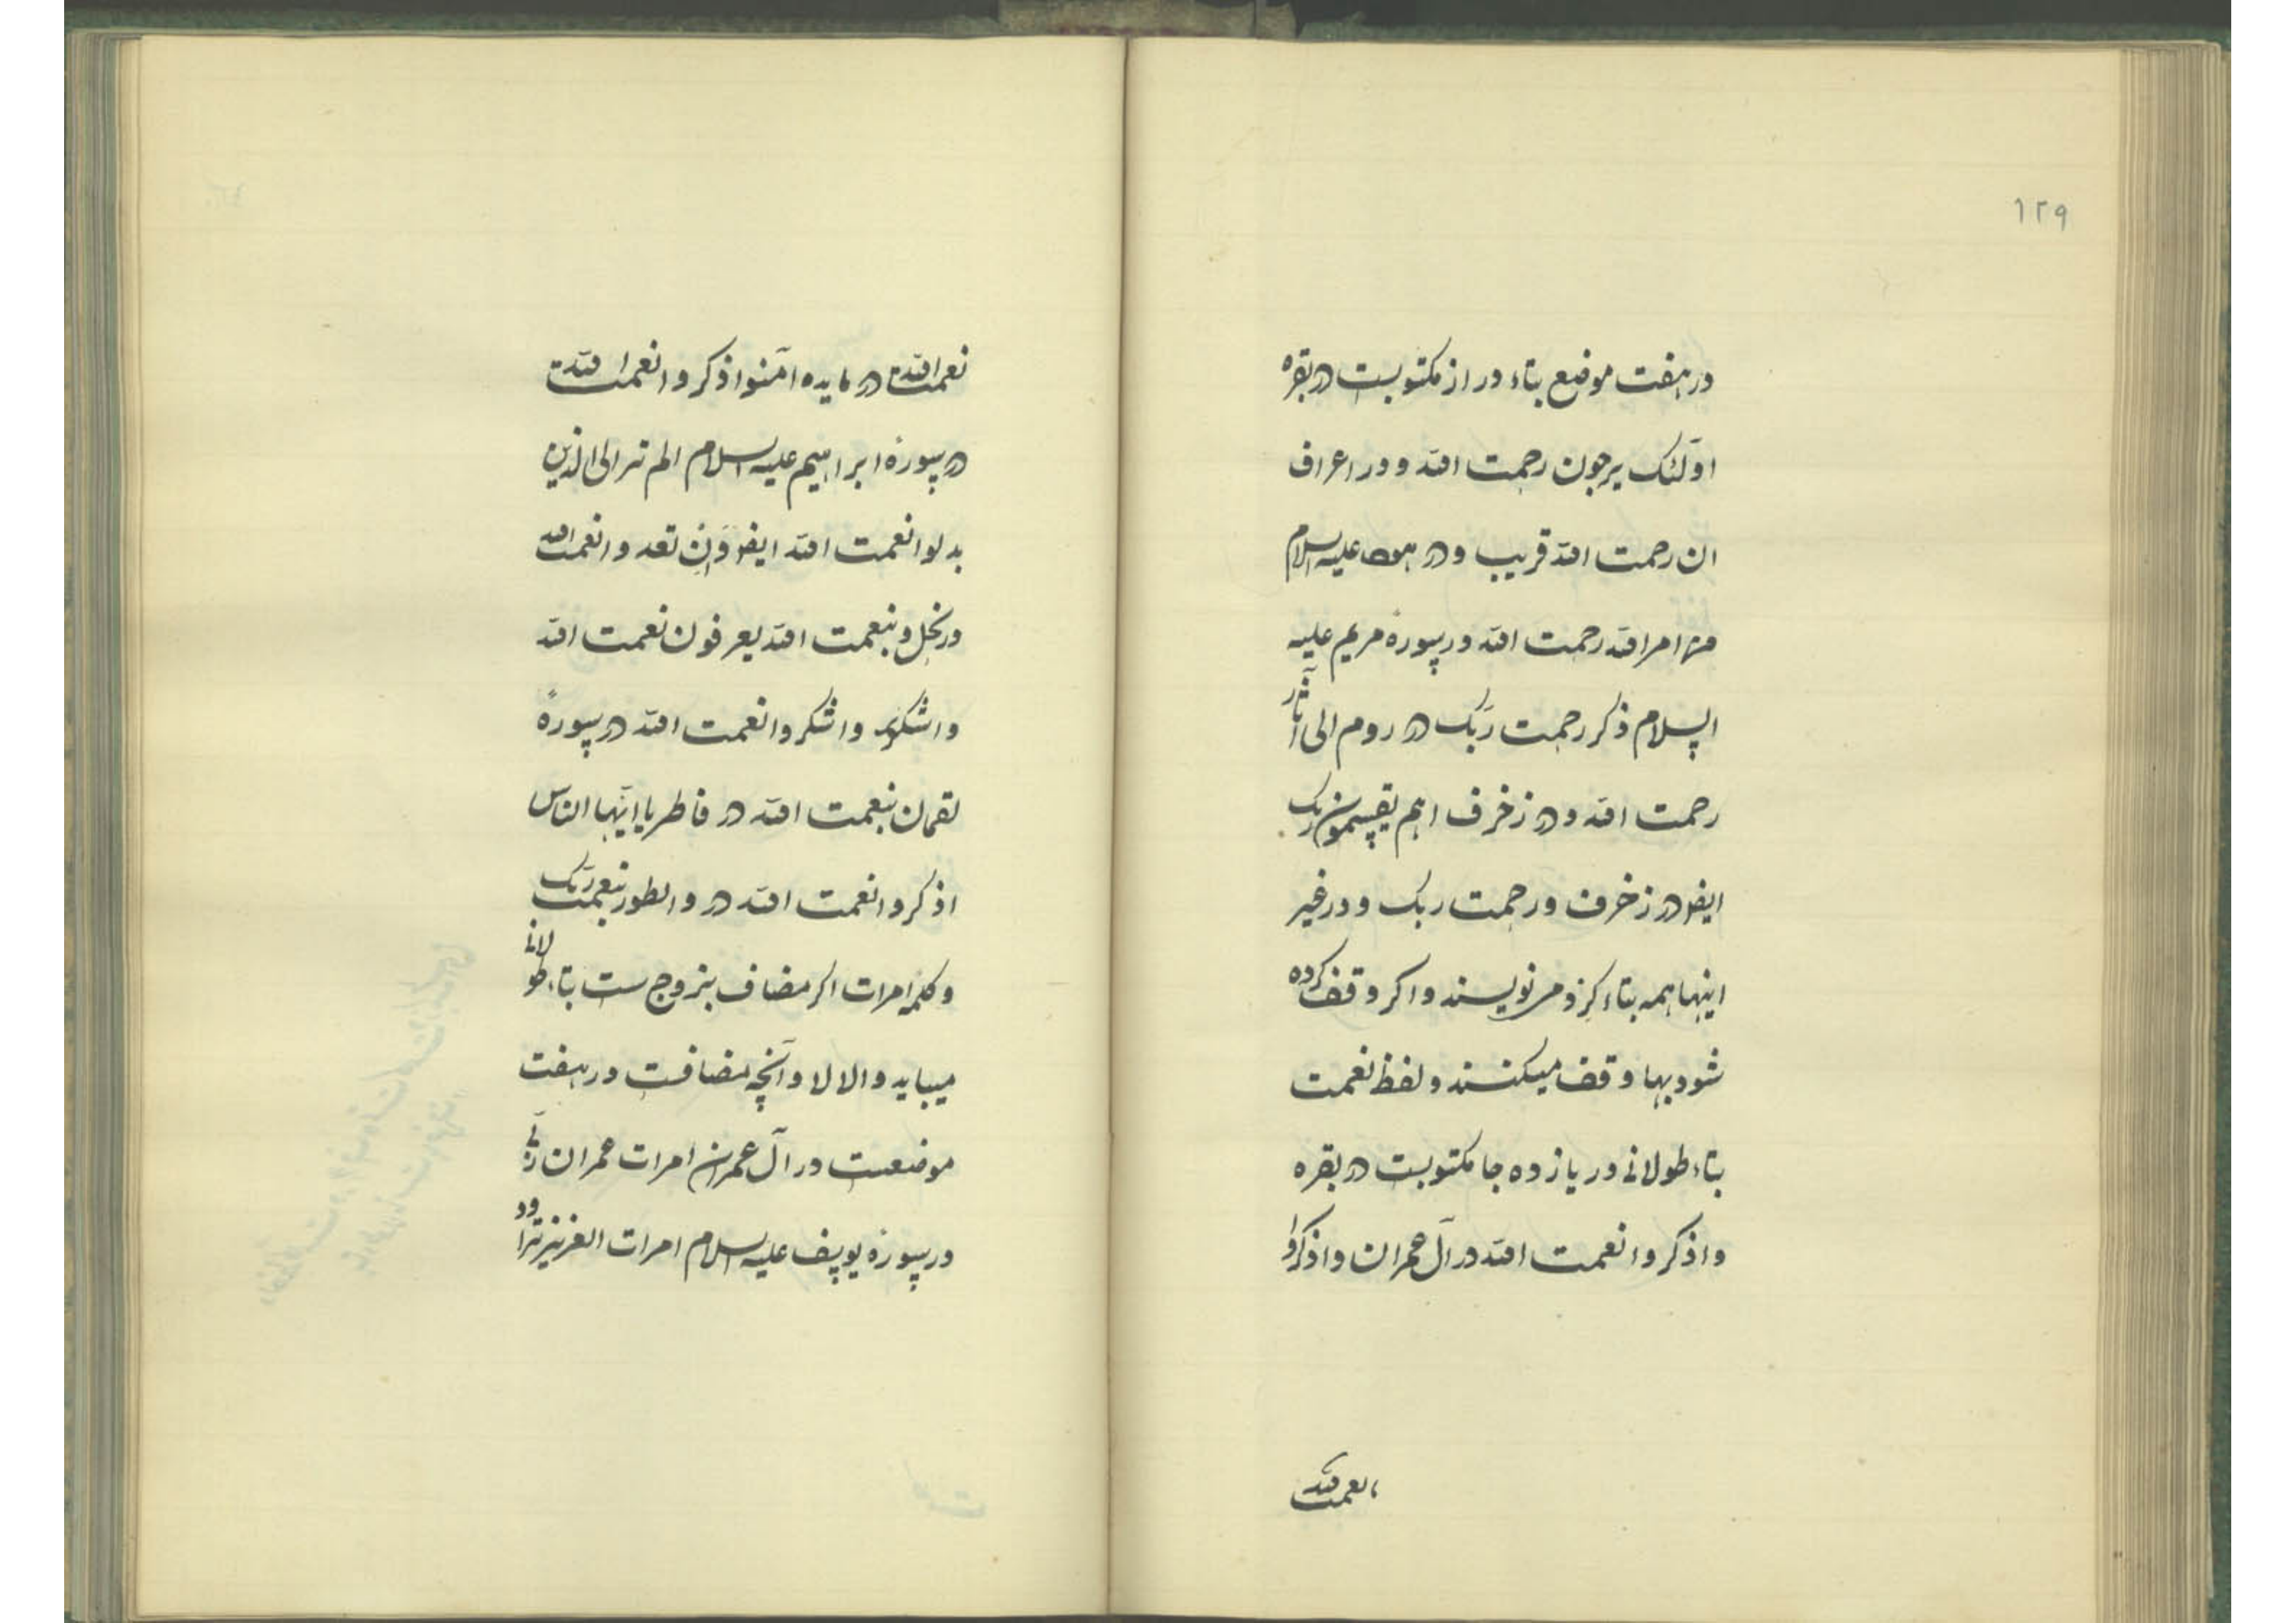 ۱۲۹
در هفت موضع بتاء دراز مکتوبست در بقره
اولئک یرجون رحمت الله و در اعراف
ان رحمت الله قریب و در هود علیه السلام
من امر الله رحمت الله در سورهٔ مریم علیه
السلام ذکر رحمت ربک در روم الی آثار
رحمت الله و در زخرف اهم یقسمون ربک
ایضا در زخرف و رحمت ربک و در غیر
اینها همه بتاء کرد می نویسند و اکر وقف کرده
شود بها وقف میکنند و لفظ نعمت
بتاء طولانی در یازده جا مکتوبست در بقره
و اذکروا نعمت الله در آل عمران و اذکروا
نعمت الله
نعمت الله در مایده آمنوا اذکروا نعمت الله
در سورهٔ ابراهیم علیه السلام الم تر الی الذین
بدلوا نعمت الله ایضا وان تعدوا نعمت الله
در نحل و بنعمت الله یعرفون نعمت الله
واشکروا نعمت الله در سورهٔ
لقمان بنعمت الله در فاطر یا ایها الناس
اذکروا نعمت الله در والطور بنعمت ربک
و کلمه امرات اکر مضاف بزوج ست بتاء طولانی
میباید والا لا و آنچه مضافست در هفت
موضعست در آل عمران امرات عمران
در سورهٔ یوسف علیه السلام امرات العزیز تراود